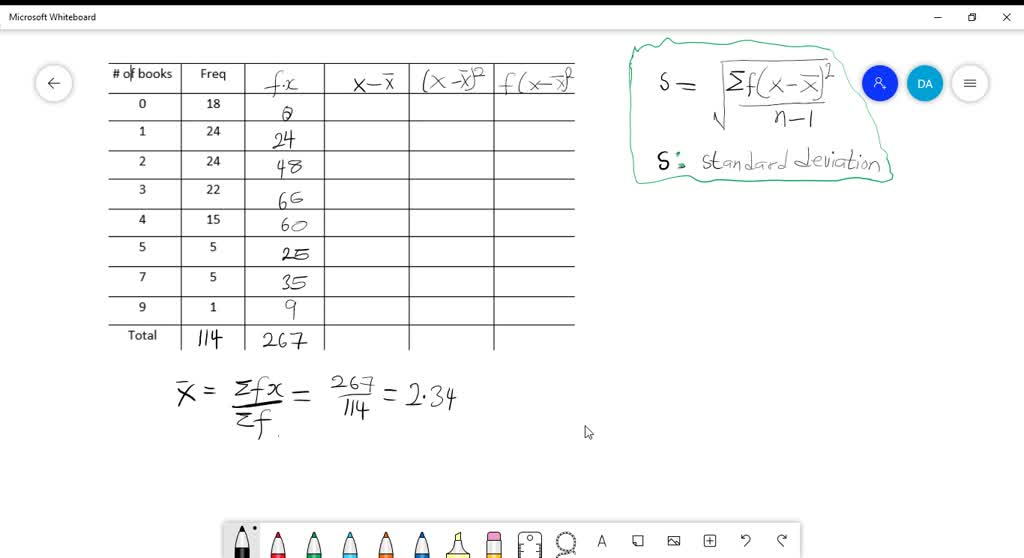 Microsoft Whiteboard
# of books Freq f.x x-x̄ (x-x̄)² f(x-x̄)²
0 18 0
1 24 24
2 24 48
3 22 66
4 15 60
5 5 25
7 5 35
9 1 9
Total 114 267
x̄ = Σfx/Σf = 267/114 = 2.34
S = √(Σf(x-x̄)²/n-1)
S: standard deviation
DA
A